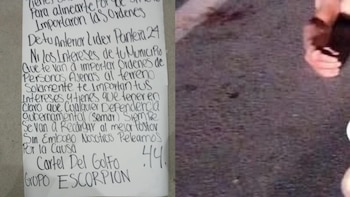 Para alinearte Por que si no te
Importaron las Ordenes
De tu Anterior Lider Pantera 24
Ni los Intereses de tu Municipio
Que te van a importar Ordenes de
Personas Ajenas al terreno
Solamente te Importan tus
Intereses y tienes que tener en
Claro que Cualquier Dependencia
Gubernamental (semar) Siempre
Se van a Recargar al mejor Postor
Sin Embargo Nosotros Peleamos
Por la Causa
Cartel Del Golfo
Grupo ESCORPION
.44.